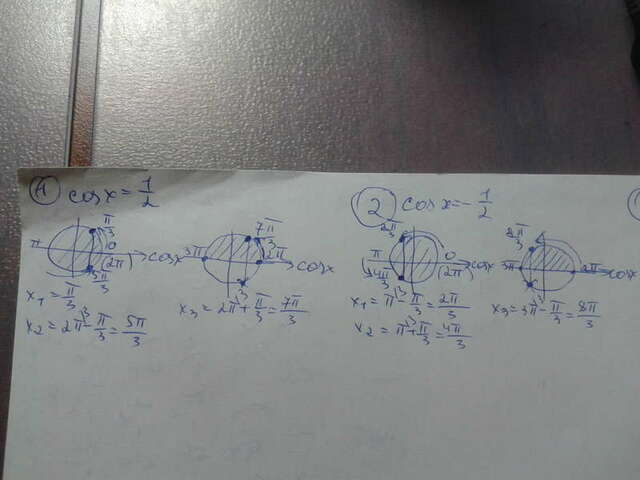 1 cosx = 1/2
π/3
π 0 (2π) cosx
5π/3
x₁ = π/3
x₂ = 2π - π/3 = 5π/3
7π/3
3π 2π cosx
x₃ = 2π + π/3 = 7π/3
2 cosx = - 1/2
2π/3
π 0 (2π) cosx
4π/3
x₁ = π - π/3 = 2π/3
x₂ = π + π/3 = 4π/3
8π/3
3π 2π cosx
x₃ = 3π - π/3 = 8π/3